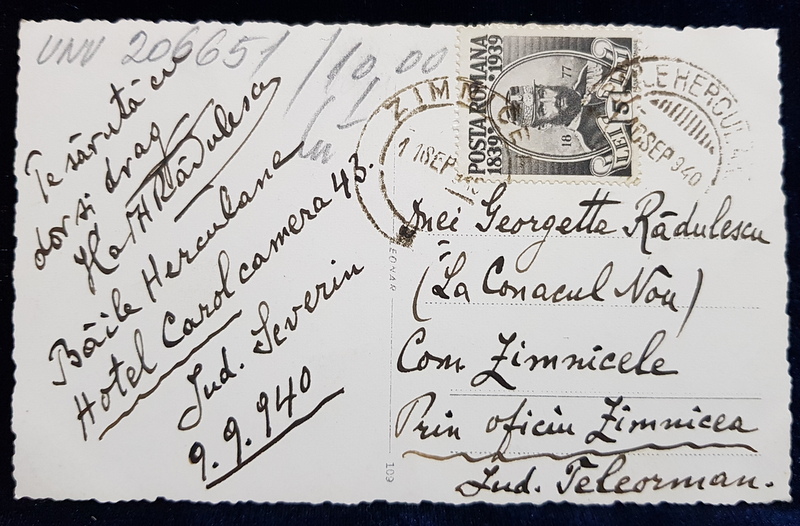 UNV 206651 / 10.00
Te sărută cu
dor si drag
Rădulescu
Băile Herculane
Hotel Carol camera 43.
Jud. Severin
9.9.940
POSTA ROMANA
1839 1939
18 77
LEI 5 LEI
ZIMNICE
11 SEP
HERCUL
10 SEP 940
Dnei Georgetta Rădulescu
(La Conacul Nou)
Com Zimnicele
Prin oficiu Zimnicea
Jud. Teleorman.
LEONAR
109